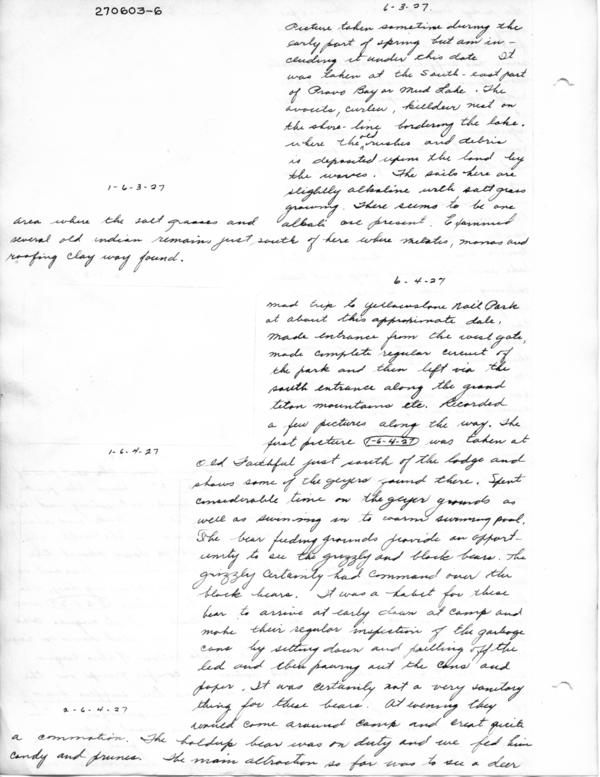 270603-6
6-3-27.
Picture taken sometime during the
early part of spring but am in-
cluding it under this date It
was taken at the South-east part
of Provo Bay or Mud Lake. The
avocets, curlew, killdeer nest on
the shore-line bordering the lake.
where the old rushes and debris
is deposited upon the land by
the waves. The soils here are
slightly alkaline with salt grass
growing. There seems to be one
1-6-3-27
area where the salt grasses and alkali are present. Examined
several old indian remains just south of here where metates, manos and
roofing clay way found.
6-4-27
mad trip to yellowstone Natl Park
at about this approximate date.
Made entrance from the west gate,
made complete regular circuit of
the park and then left via the
south entrance along the grand
teton mountains etc. Recorded
a few pictures along the way. The
first picture 1-6-4-27 was taken at
1-6-4-27
Old Faithful just south of the lodge and
shows some of the geyers found there. Spent
considerable time on the geyer grounds as
well as swimming in to warm swimming pool.
The bear feeding grounds provide an opport-
unity to see the grizzly and black bears. The
grizzly certainly had command over the
black bears. It was a habit for these
bear to arrive at early dawn at camp and
make their regular inspection of the garbage
cans by sitting down and pulling off the
led and then pawing out the cans and
paper. It was certainly not a very sanitary
thing for these bears. At evening they
2-6-4-27
would come around camp and creat quite
a commotion. The holdup bear was on duty and we fed him
candy and prunes. The main attraction so far was to see a deer